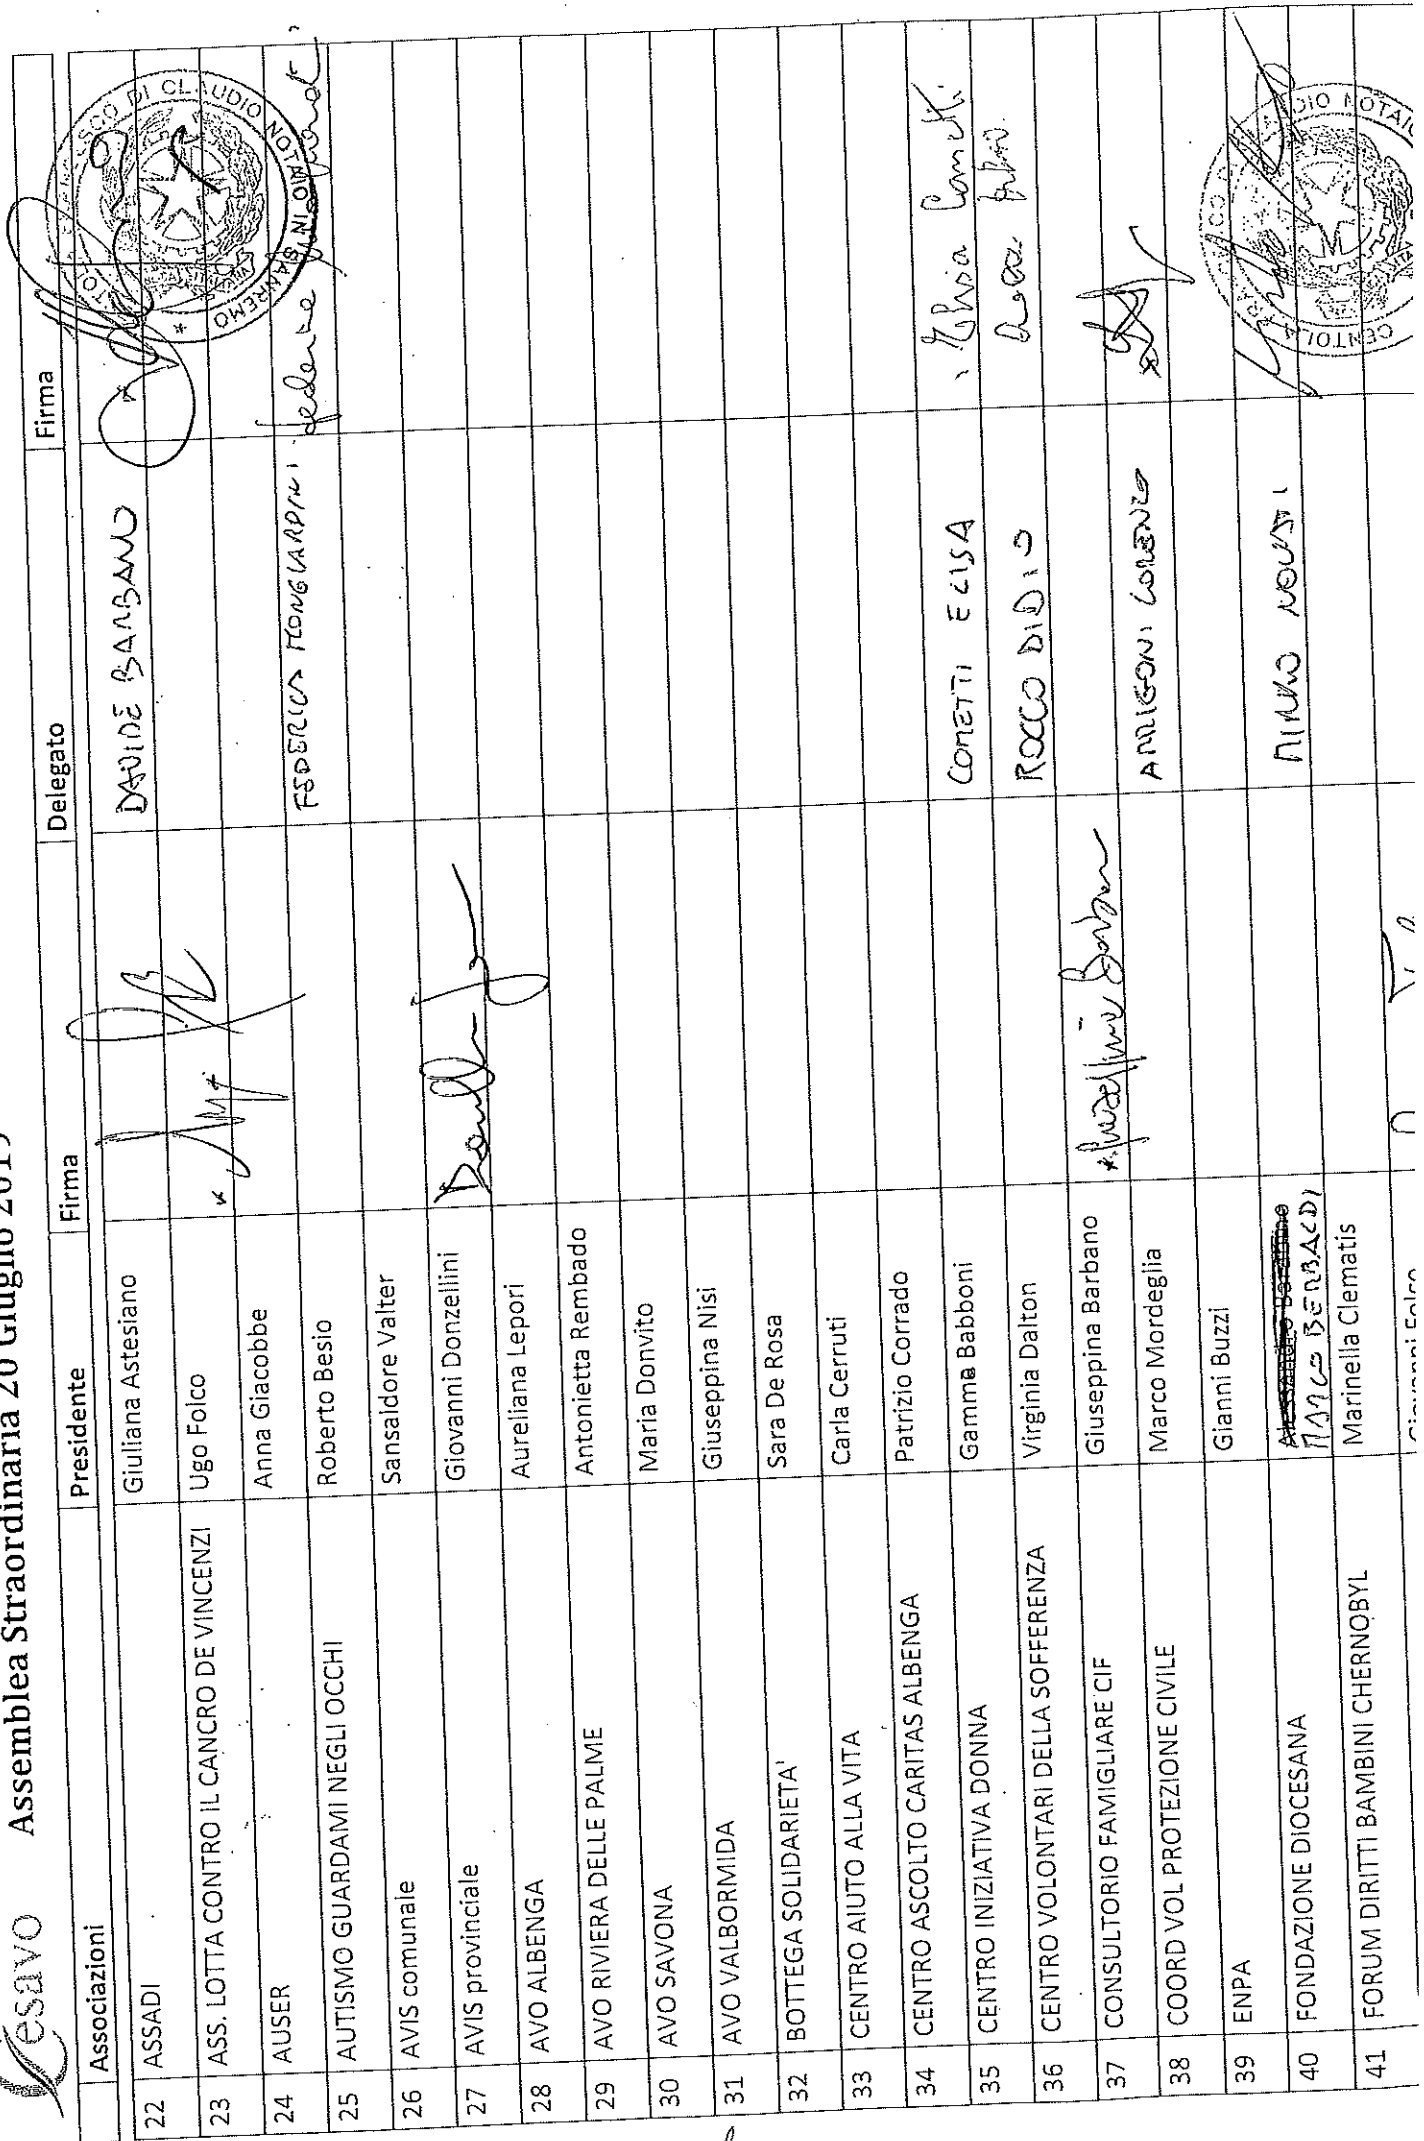 Cesavo Assemblea Straordinaria 20 Giugno 2019
Associazioni Presidente Firma Delegato Firma
22 ASSADI Giuliana Astesiano DAVIDE BARBANO
23 ASS. LOTTA CONTRO IL CANCRO DE VINCENZI Ugo Folco
24 AUSER Anna Giacobbe
25 AUTISMO GUARDAMI NEGLI OCCHI Roberto Besio
26 AVIS comunale Sansaldore Valter
27 AVIS provinciale Giovanni Donzellini
28 AVO ALBENGA Aureliana Lepori
29 AVO RIVIERA DELLE PALME Antonietta Rembado
30 AVO SAVONA Maria Donvito
31 AVO VALBORMIDA Giuseppina Nisi
32 BOTTEGA SOLIDARIETA' Sara De Rosa
33 CENTRO AIUTO ALLA VITA Carla Cerruti
34 CENTRO ASCOLTO CARITAS ALBENGA Patrizio Corrado
35 CENTRO INIZIATIVA DONNA Gamma Babboni COMETTI ELISA Elisa Cometti
36 CENTRO VOLONTARI DELLA SOFFERENZA Virginia Dalton ROCCO DIDIO
37 CONSULTORIO FAMIGLIARE CIF Giuseppina Barbano
38 COORD VOL PROTEZIONE CIVILE Marco Mordeglia AMIGONI LORENZO
39 ENPA Gianni Buzzi
40 FONDAZIONE DIOCESANA MARCO BERBALDI MIRKO NOUSTI
41 FORUM DIRITTI BAMBINI CHERNOBYL Marinella Clematis
Giovanni Folco
DI CLAUDIO NOTAIO IN SANREMO
CENTOLA